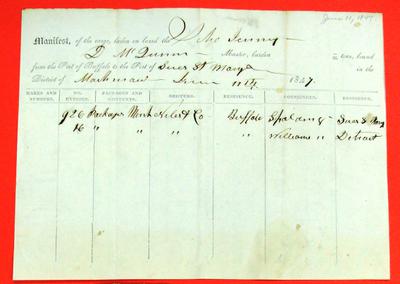 June 11, 1847
Manifest, of the cargo, laden on board the Scho Jenny
D McQueen Master, burden tons, bound
from the Port of Buffalo to the Port of Saut St Marys in the
District of Mackinaw June 11th, 1847.
MARKS AND NUMBERS. NO. ENTRIES. PACKAGES AND CONTENTS. SHIPPERS. RESIDENCE. CONSIGNEES. RESIDENCE.
926 Packages Mdse & Co Buffalo Spalding Saut S Mary
16 " " " " Williams " Detroit